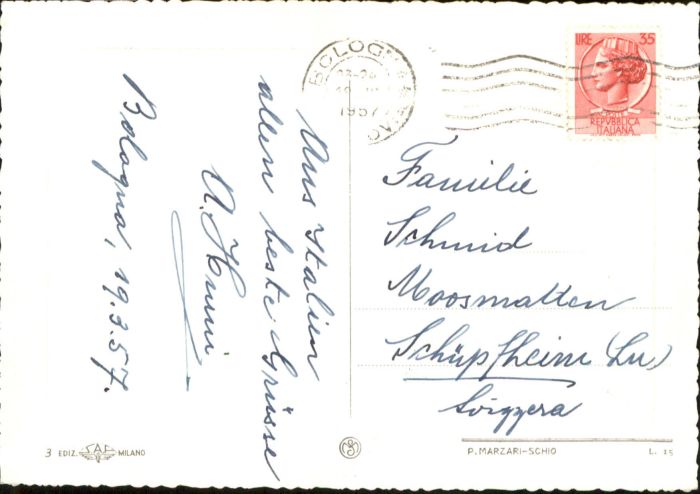 Bologna, 19.3.57.
Aus Italien
allen beste Grüsse
Familie
Schmid
Moosmatten
Schüpfheim (Lu)
Svizzera
BOLOG
1957
LIRE 35
REPVBBLICA
ITALIANA
3 EDIZ. SAF MILANO
P. MARZARI-SCHIO
L. 15